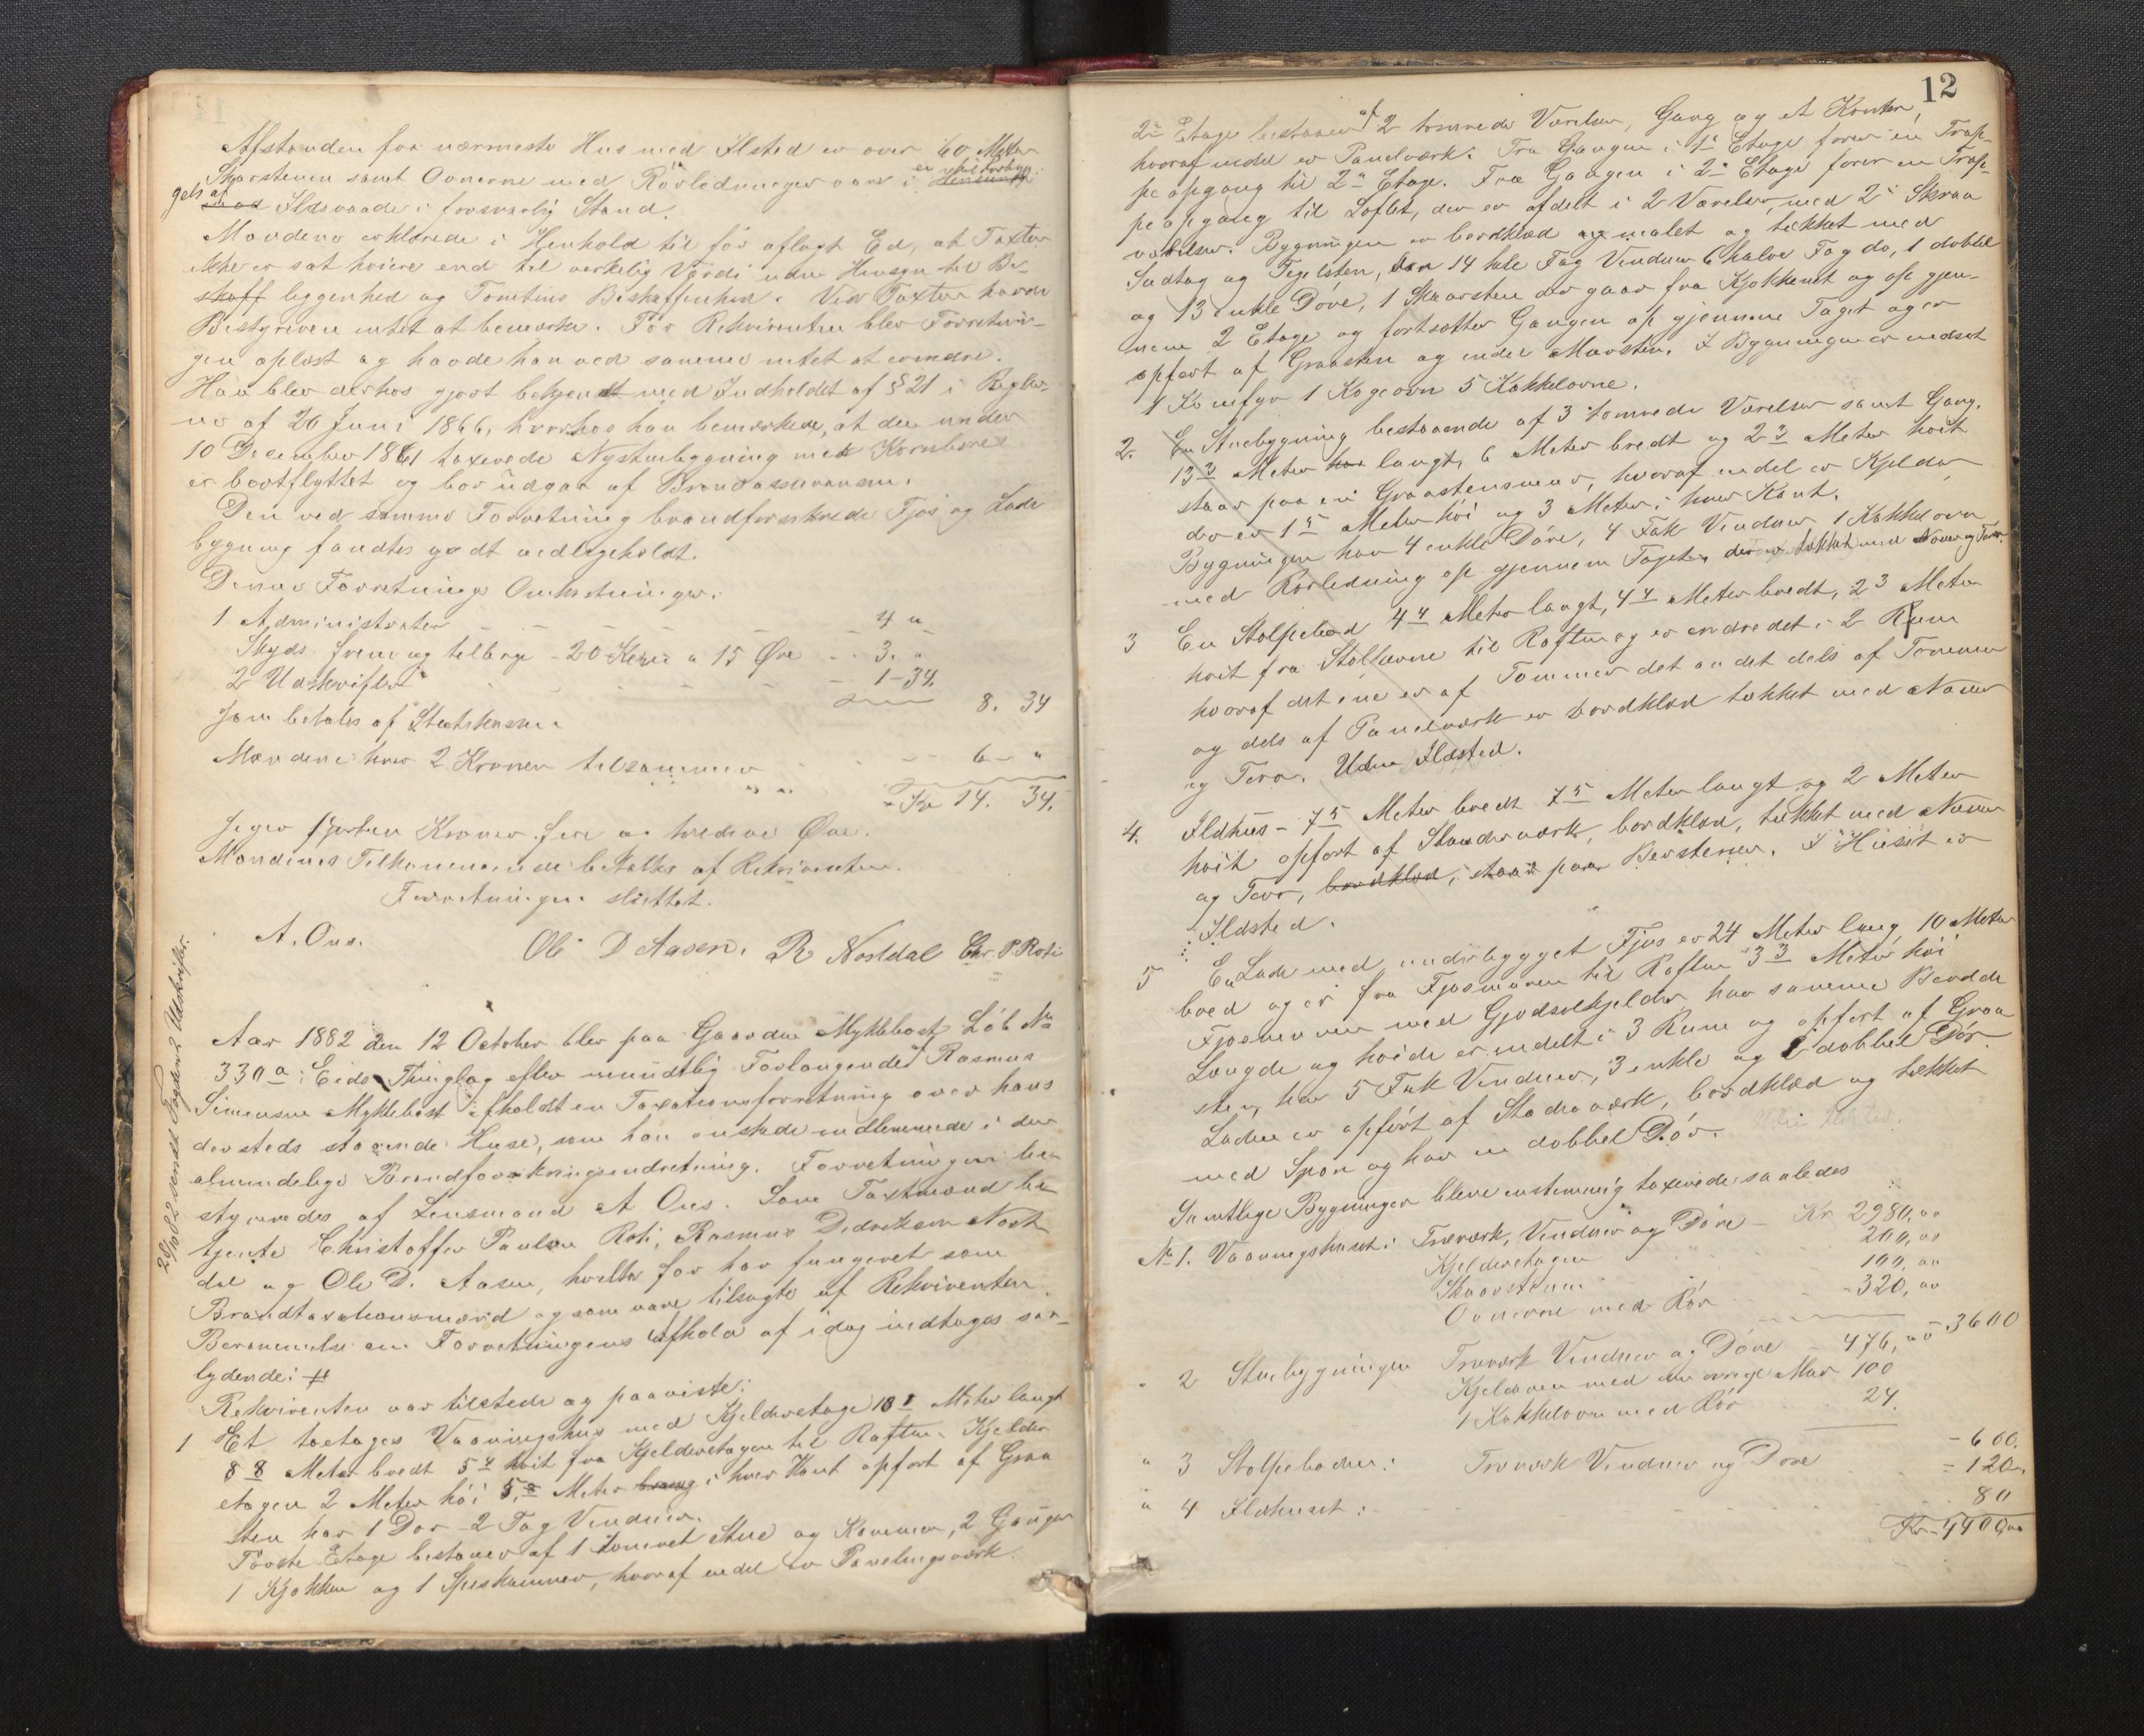 Afstanden fra nærmeste Hus med Ilsted er over 60 Meter
Skorstenen samt Ovnerne med Rørledninger vare i
Ildsvaade i forsvarlig Stand.
Mændene erklærede i Henhold til før aflagt Ed, at Taxten
ikke er sat høiere end til verkelig Værdi uden Hensyn til Be-
skaff liggenhed og Tomtens Beskaffenhed. Ved Taxten havde
Bestyreren intet at bemærke. For Rekvirenten blev Forretnin-
gen oplæst og havde han ved samme intet at erindre.
Han blev derhos gjort bekjendt med Indholdet af § 21 i Regler-
ne af 20 Juni 1866, hvorhos han bemærkede, at den under
10 December 1861 taxerede Nystuebygning med Kornbod
er bortflyttet og bør udgaa af Brandassurancen.
Den ved samme Forretning brandforsikrede Fjøs og Lade
bygning fandtes godt vedligeholdt.
Denne Forretnings Omkostninger.
1 Administrator 4 "
Skyds frem og tilbage - 20 Kilm a 15 Øre - 3. "
2 Udskrifter - 1-34.
8. 34
som betales af Statskassen.
Mændene hver 2 Kroner tilsammen - 6 - "
Kr 14. 34.
siger fjorten Kroner fire og tredive Øre.
Mændenes Tilkommende betaltes af Rekvirenten.
Forretningen sluttet.
A. Ous. Ole D Aasen. R Nostdal Chr. P. Roti
20/10 82 sendt Fogden 2 Udskrifter.
Aar 1882 den 12 October blev paa Gaarden Myklebost Løb No
330a i Eids Thinglag efter mundtlig Forlangende Rasmus
Simensen Myklebost afholdt en Taxationsforretning over hans
dersteds staaende Huse, som han ønskede indlemmede i den
almindelige Brandforsikringsindretning. Forretningen be-
styredes af Lensmand A Ous. Som Taxtmænd be
tjente Christoffer Paulsen Roti, Rasmus Didriksen Nost
dal og Ole D. Aasen, hvilke før har fungeret som
Brandtaxationsmænd og som vare tilsagte af Rekvirenten.
Berammelse om Forretningens Afhold af idag indtages saa-
lydende: #
Rekvirenten var tilstede og paaviste:
1 Et toetages Vaaningshus med Kjelderetage 10 Meter langt
8 8 Meter bredt 5 4 høit fra Kjelderetagen til Raften. Kjelder
etagen 2 Meter høi 5, Meter i hver Kant opført af Graa
sten har 1 Dør - 2 Fag Vinduer.
Første Etage bestaaer af 1 tømret Stue og Kammer, 2 Gange
1 Kjøkken og 1 Spiskammer, hvoraf endel er Panelingsværk.
12
2n Etage bestaaer af 2 tømrede Værelser, Gang og et Kontor,
hvoraf endel er Panelværk. Fra Gangen i 1e Etage fører en Trap-
pe opgang til 2n Etage. Fra Gangen i 2n Etage fører en Trap-
pe opgang til Loftet, der er afdelt i 2 Værelser, med 2 Skraa
værelser. Bygningen er bordklæd og malet og tækket med
Sudtag og Tegelsten, har 14 hele Fag Vinduer 6 halve Fag do, 1 dobbel
og 13 enkle Døre, 1 Skorsten der gaar fra Kjøkkenet og op gjen-
nem 2 Etage og fortsætter Gangen op gjennem Taget og er
opført af Graasten og endel Mursten. I Bygningen er indsat
1 Komfyr 1 Kogeovn 5 Kakkelovne.
2. En Stuebygning bestaaende af 3 tømrede Værelser samt Gang,
13 2 Meter langt, 6 Meter bredt og 2 3 Meter høit
staar paa en Graastensmur, hvoraf endel er Kjelder
der er 1 5 Meter høi og 3 Meter i hver Kant.
Bygningen har 4 enkle Døre, 4 Fak Vinduer 1 Kakkelovn
med Rørledning op gjennem Taget, der er tækket med Næver og Torv.
3 En Stolpebod 4 4 Meter langt, 4 4 Meter bredt, 2 3 Meter
høit fra Stolperne til Raften og er indredet i 2 Rum
hvoraf det ene er af Tømmer det andet dels af Tømmer
og dels af Panelværk er bordklæd tækket med Næver
og Torv. Uden Ildsted.
4. Ildhus - 7 5 Meter bredt 7 5 Meter langt og 2 Meter
høit opført af Standerværk, bordklæd, tækket med Næver
og Torv, bordklæd, staar paa Berstener. I Huset er
Ildsted.
5 En Lade med underbygget Fjøs er 24 Meter lang 10 Meter
bred og er fra Fjøsmuren til Raften 3 3 Meter høi
Fjøsmuren med Gjødselkjelder har samme Bredde
Længde og høide er indelt i 3 Rum og opført af Graa
sten, har 5 Fak Vinduer, 3 enkle og 1 dobbel Dør.
Laden er opført af Stadværk, bordklæd og tækket
med Spon og har en dobbel Dør.
Samtlige Bygninger bleve enstemmig taxerede saaledes
No 1. Vaaningshuset: Træværk, Vinduer og Døre - Kr 2980,00
Kjelderetagen 200,00
Skorstenen 100,00
Ovnerne med Rør - 320,00
3600
" 2 Stuebygningen Træværk Vinduer og Døre - 476,00
Kjelderen med den øvrige Mur 100
1 Kakkelovn med Rør 24.
- 600.
" 3 Stolpeboden: Træværk Vinduer og Døre - 120.
" 4 Ildhuset: 80
Kr 4400,00